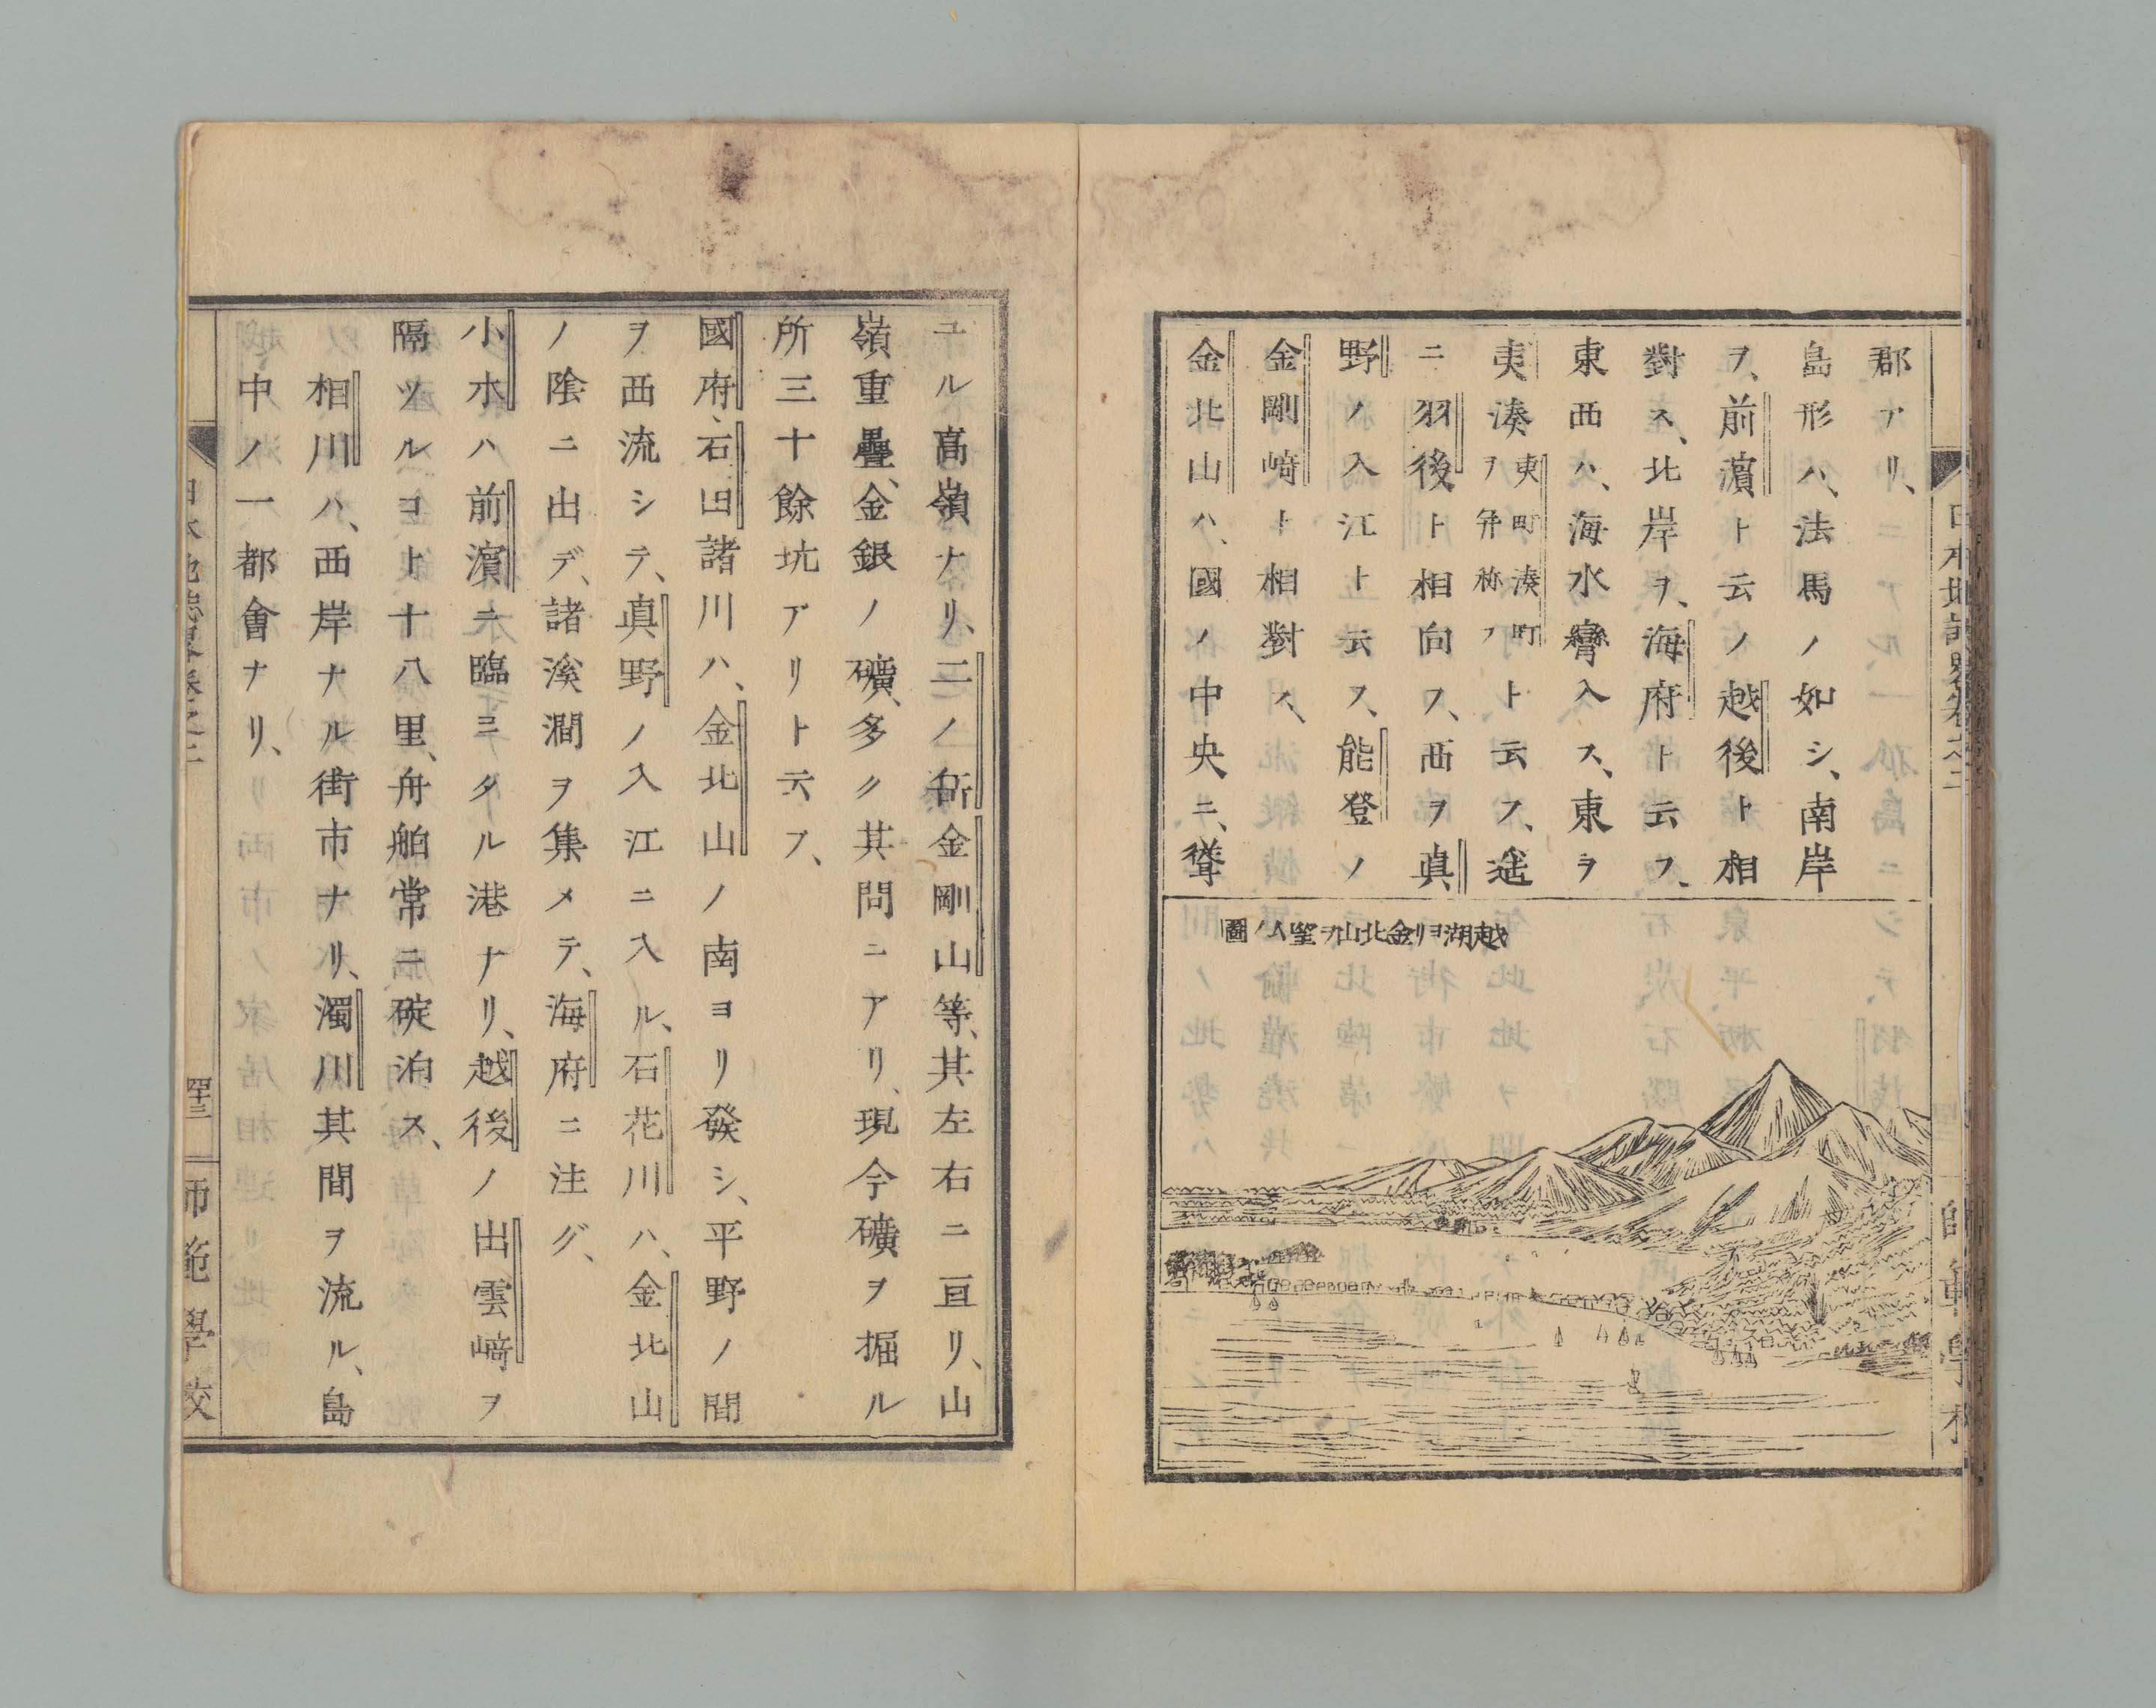 郡アリ、
島形ハ、法馬ノ如シ、南岸
ヲ、前濵ト云ノ越後ト相
對ス、北岸ヲ、海府ト云フ、
東西ハ、海水彎入ス、東ヲ
夷湊夷町湊町ヲ并称ノト云ス、遥
ニ羽後ト相向ス、西ヲ眞
野ノ入江ト云ス、能登ノ
金剛﨑ト相對ス、
金北山ハ、國ノ中央ニ、聳
越湖ヨリ金北山ヲ望ムノ圖
ユル髙嶺ナリ、二ノ岳金剛山等、其左右ニ亘リ、山
嶺重疊、金銀ノ礦、多ク其問ニアリ、現今礦ヲ掘ル
所三十餘坑アリト云フ、
國府、石田諸川ハ、金北山ノ南ヨリ發シ、平野ノ間
ヲ西流シテ、真野ノ入江ニ入ル、石花川ハ、金北山
ノ陰ニ出デ、諸溪澗ヲ集メテ、海府ニ注グ、
小木ハ前濵ニ臨ミタル港ナリ、越後ノ出雲﨑ヲ
隔ツルヿ十八里、舟舶常ニ碇泊ス、
相川ハ、西岸ナル街市ナリ、濁川其間ヲ流ル、島
中ノ一都會ナリ、
日本地誌畧卷之二
四十三
師範學校